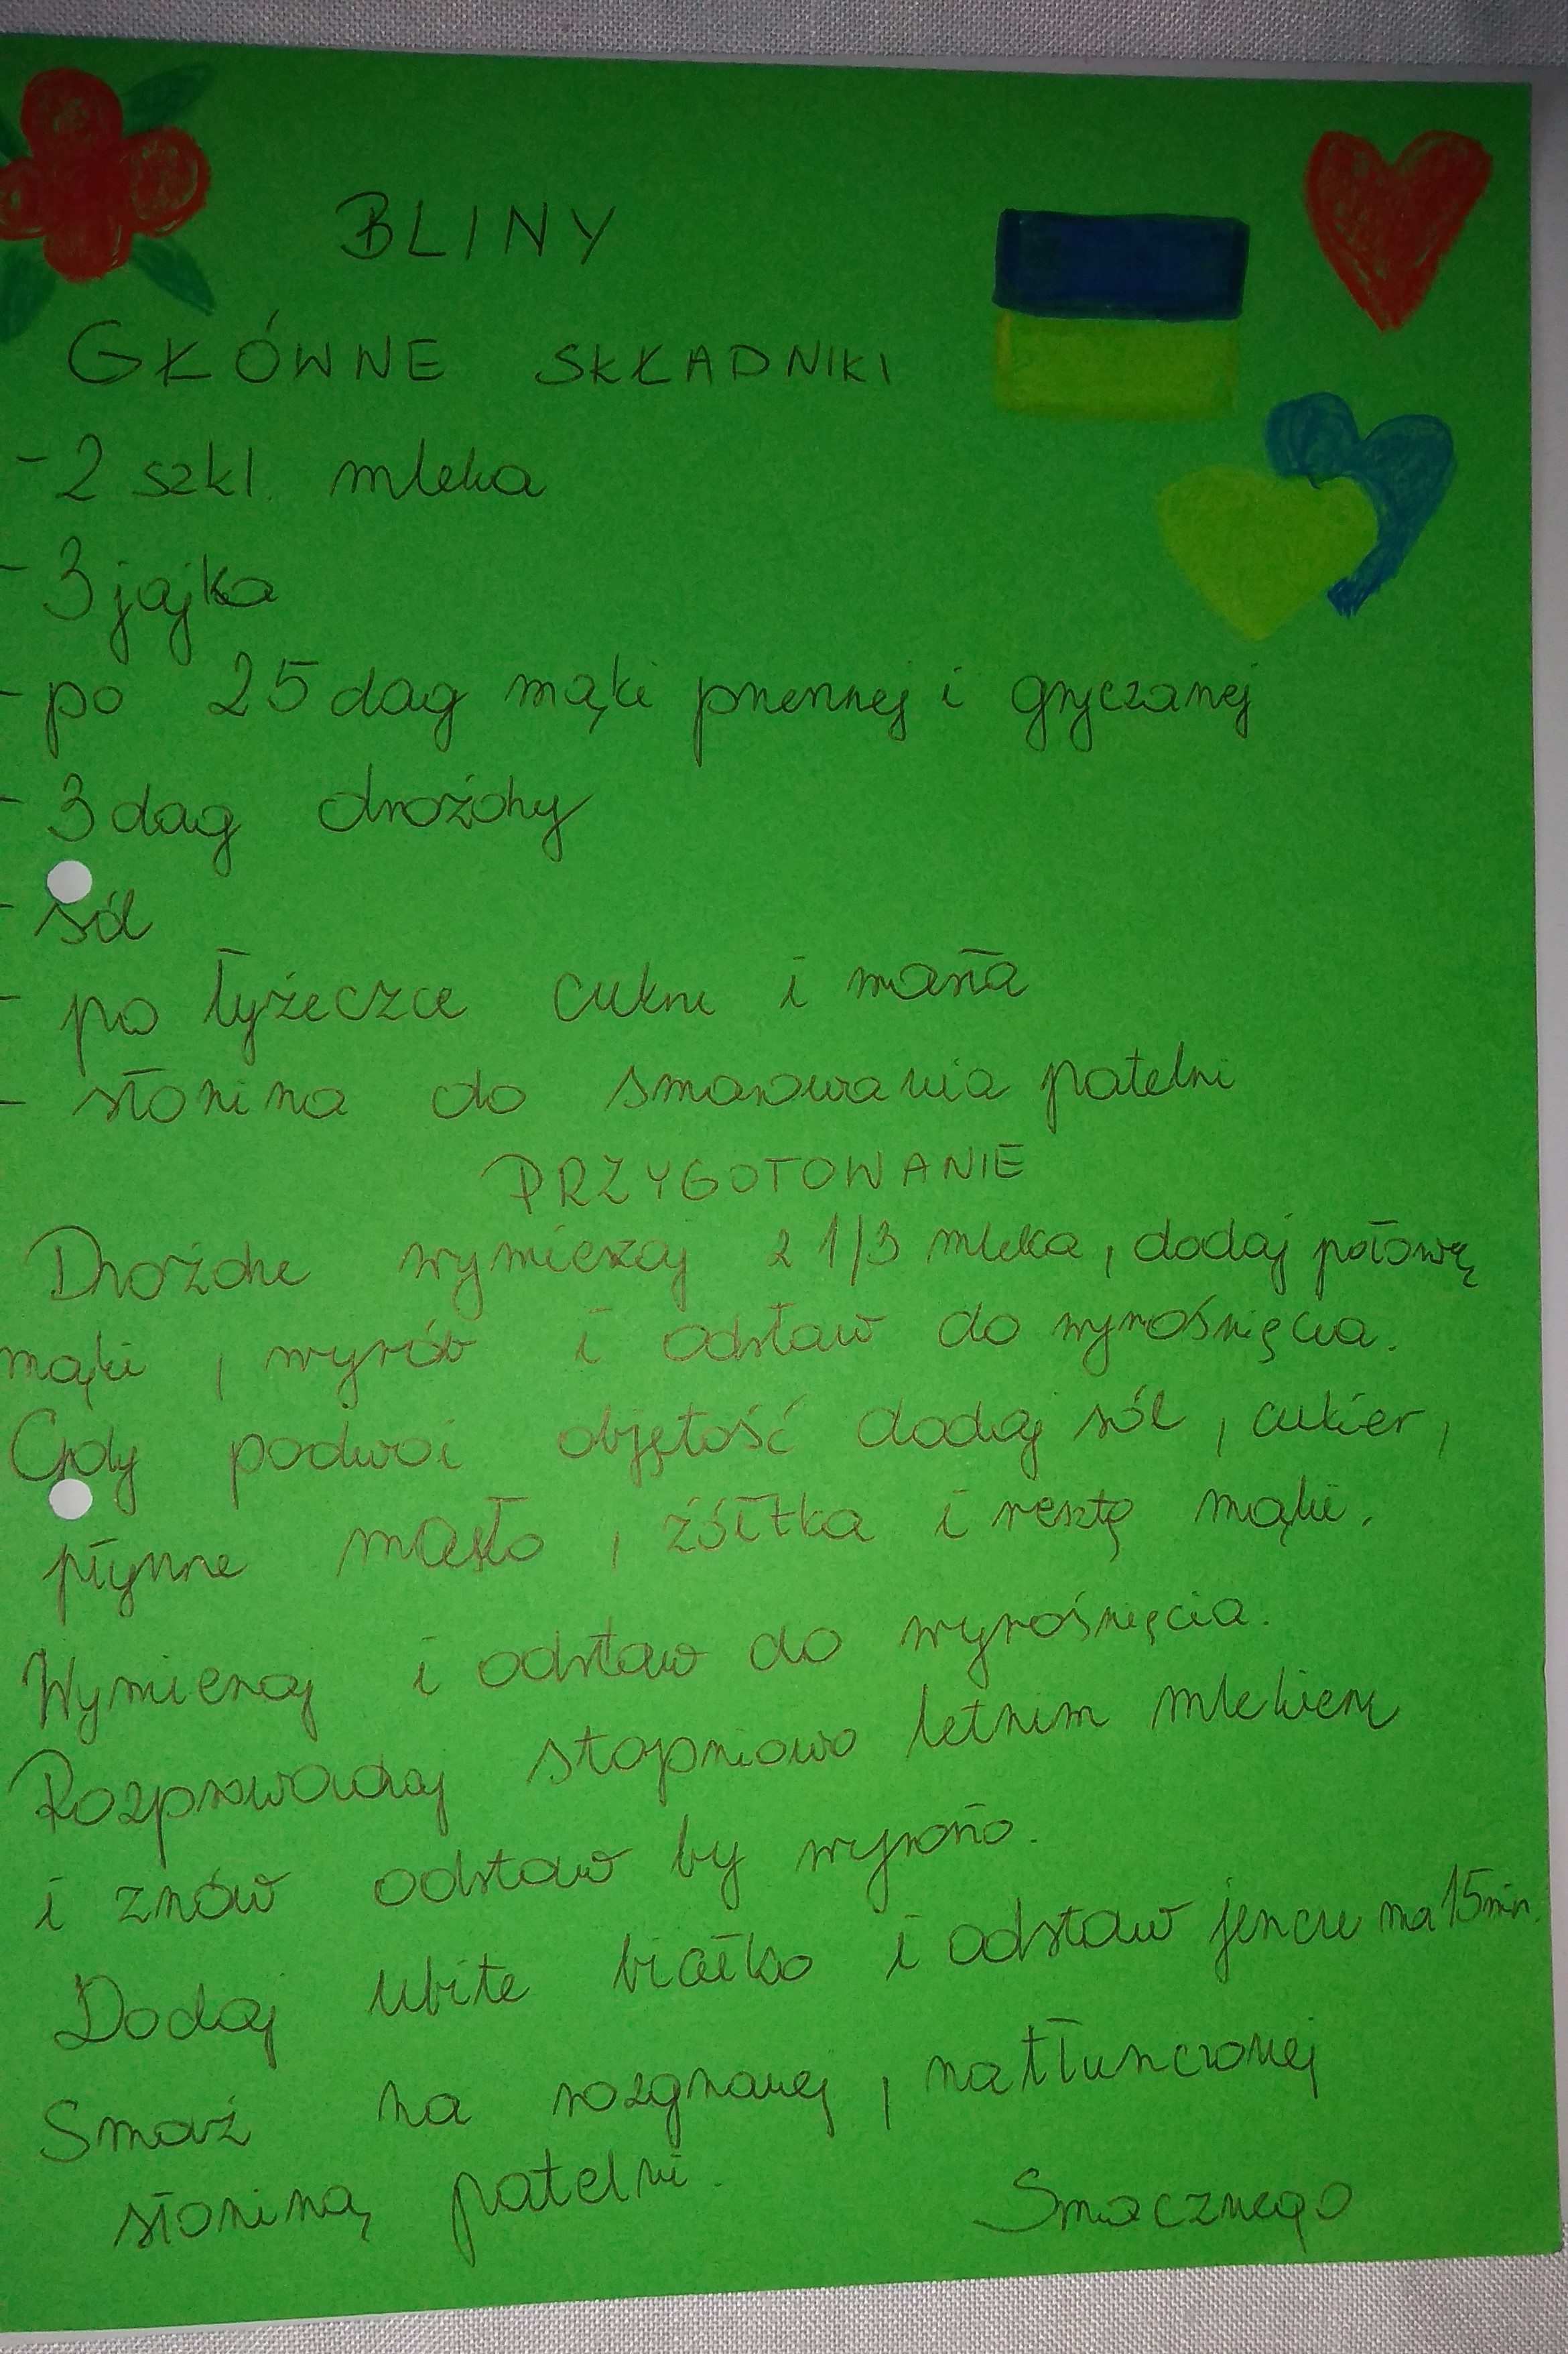 BLINY
GŁÓWNE SKŁADNIKI
- 2 szkl. mleka
- 3 jajka
- po 25 dag mąki pszennej i gryczanej
- 3 dag drożdży
- sól
- po łyżeczce cukru i masła
- słonina do smarowania patelni
PRZYGOTOWANIE
Drożdże wymieszaj z 1/3 mleka, dodaj połowę
mąki, wyrób i odstaw do wyrośnięcia.
Gdy podwoi objętość dodaj sól, cukier,
płynne masło, żółtka i resztę mąki.
Wymieszaj i odstaw do wyrośnięcia.
Rozprowadzaj stopniowo letnim mlekiem
i znów odstaw by wyrosło.
Dodaj ubite białko i odstaw jeszcze na 15 min.
Smaż na rozgrzanej, natłuszczonej
słoniną patelni.
Smacznego